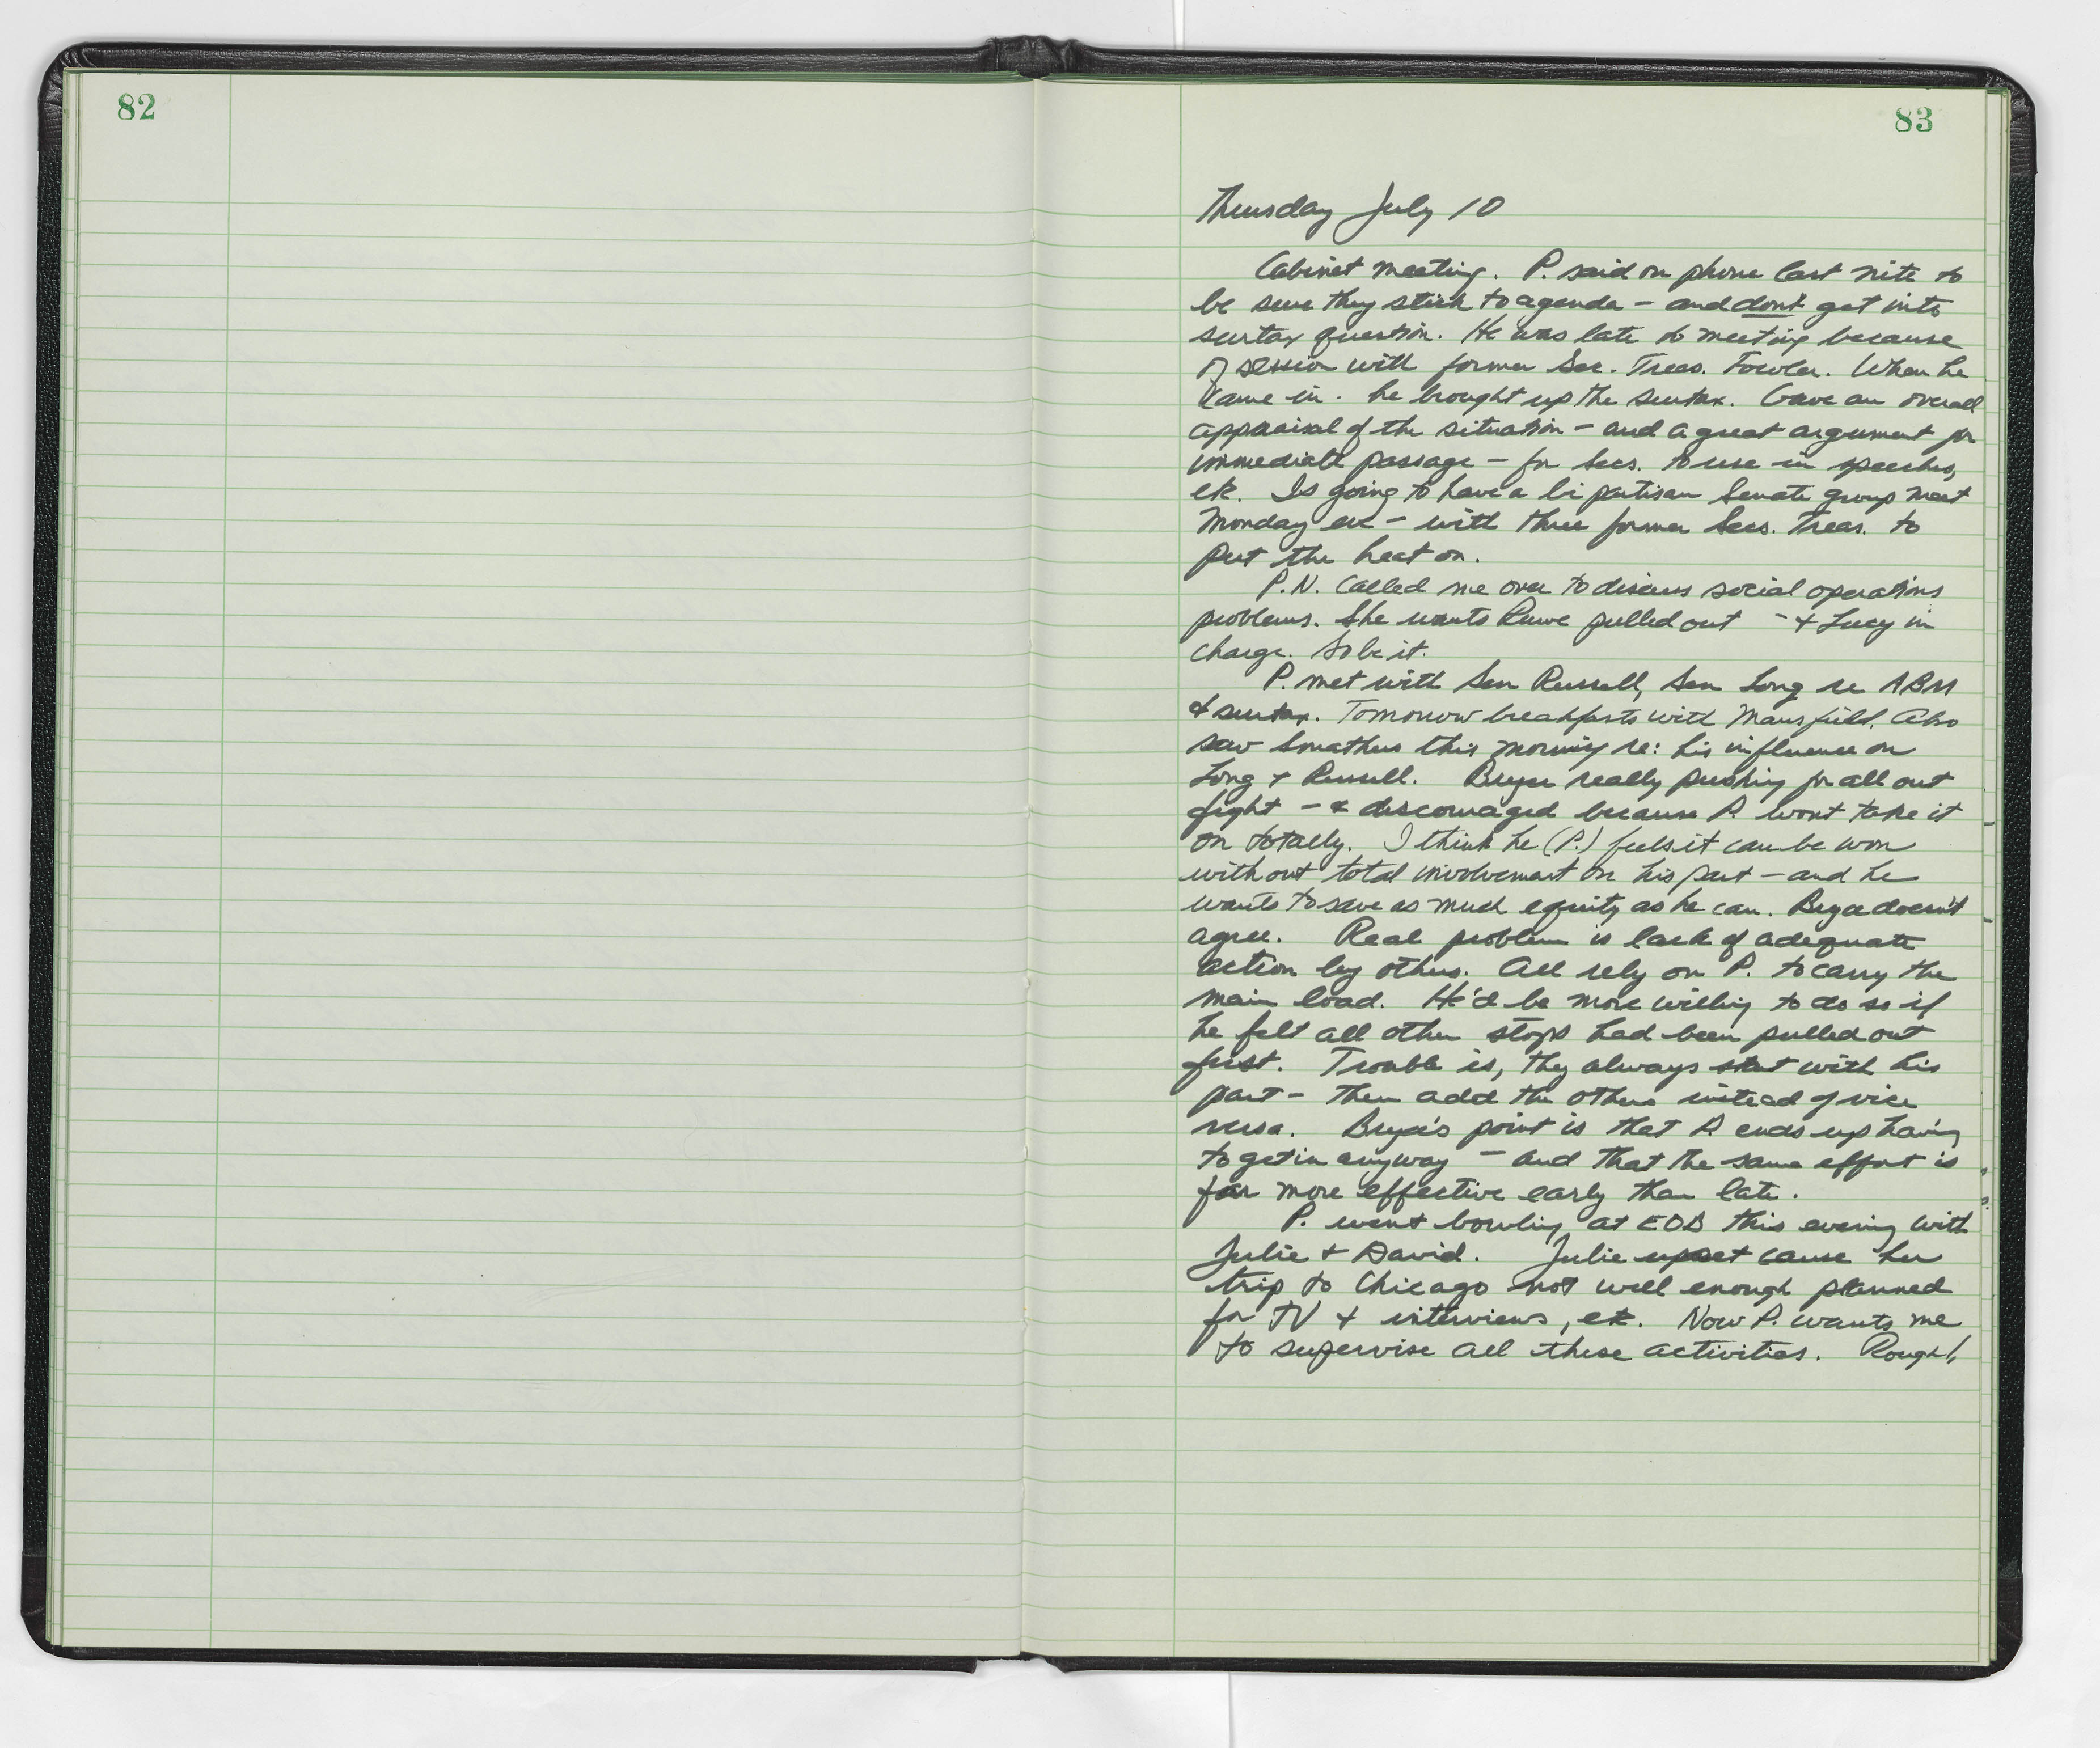 82
83
Thursday July 10
Cabinet meeting. P. said on phone last nite to
be sure they stick to agenda - and dont get into
surtax question. He was late to meeting because
of session with former Sec. Treas. Fowler. When he
came in. he brought up the surtax. Gave an overall
appraisal of the situation - and a great argument for
immediate passage - for Secs. to use in speeches,
etc. Is going to have a bi partisan Senate group meet
Monday eve - with three former Secs. Treas. to
put the heat on.
P.N. called me over to discuss social operations
problems. She wants Ruwe pulled out - & Lucy in
charge. So be it.
P. met with Sen Russell, Sen Long re ABM
& surtax. Tomorrow breakfasts with Mansfield. Also
saw Smathers this morning re: his influence on
Long + Russell. Bryce really pushing for all out
fight - & discouraged because P. wont take it
on totally. I think he (P.) feels it can be won
without total involvement on his part - and he
wants to save as much equity as he can. Bryce doesn't
agree. Real problem is lack of adequate
action by others. All rely on P. to carry the
main load. He'd be more willing to do so if
he felt all other stops had been pulled out
first. Trouble is, they always start with his
part - then add the others instead of vice
versa. Bryce's point is that P. ends up having
to get in anyway - and that the same effort is
far more effective early than late.
P. went bowling at EOB this evening with
Julie + David. Julie upset cause her
trip to Chicago not well enough planned
for TV + interviews, etc. Now P. wants me
to supervise all these activities. Rough!